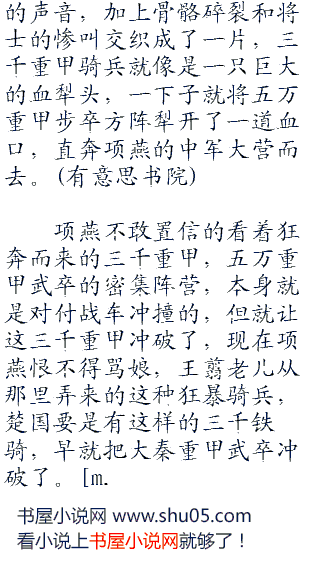 的声音，加上骨骼碎裂和将
士的惨叫交织成了一片，三
千重甲骑兵就像是一只巨大
的血犁头，一下子就将五万
重甲步卒方阵犁开了一道血
口，直奔项燕的中军大营而
去。(有意思书院)
项燕不敢置信的看着狂
奔而来的三千重甲，五万重
甲武卒的密集阵营，本身就
是对付战车冲撞的，但就让
这三千重甲冲破了，现在项
燕恨不得骂娘，王翦老儿从
那里弄来的这种狂暴骑兵，
楚国要是有这样的三千铁
骑，早就把大秦重甲武卒冲
破了。[m.
书屋小说网 www.shu05.com
看小说上书屋小说网就够了！